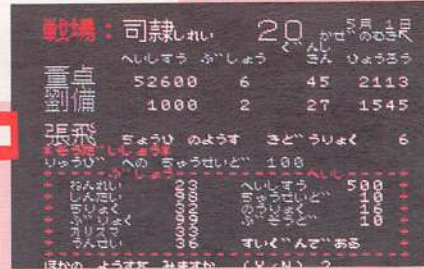 戦場：司隷しれい 20 5月 1日
かぜのむき尺
ぐんし
へいしすう ぶしょう きん ひょうろう
董卓 52600 6 45 2113
劉備 1000 2 27 1545
張飛 ちょうひ のようす きどうりょく 6
りゅうび への ちゅうせいど 100
ぶしょう へいし
ねんれい 23 へいしすう 500
しんたい 98 ちゅうせいど 10
ちりょく 32 のうりょく 16
ぶりょく 99 ぶそうど 10
カリスマ 33
うんせい 36 すいぐんである
ほかの ようすを みますか (Y/N) ?